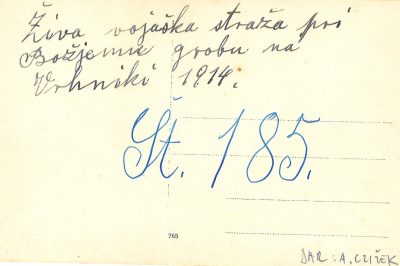 Živa vojaška straža pri
Božjemu grobu na
Vrhniki 1914.
Št. 185.
765
DAR: A. CZIŽEK